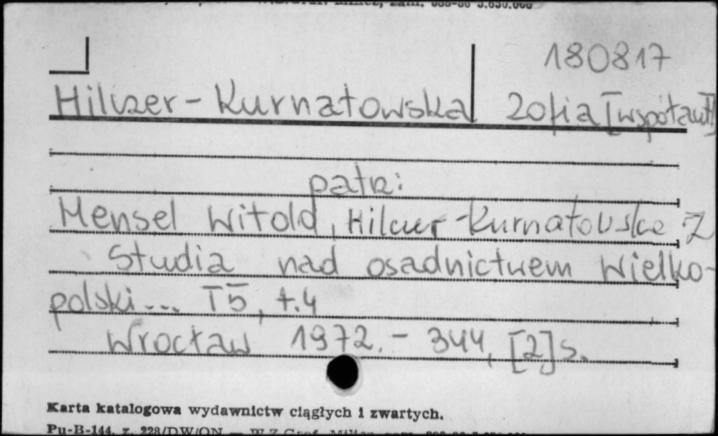 180817
Hilczer-Kurnatowska Zofia [współaut]
patrz:
Hensel Witold, Hilczer-Kurnatowska Z
Studia nad osadnictwem Wielko-
polski... T5, t.4
Wrocław 1972.- 344, [2]s.
Karta katalogowa wydawnictw ciągłych i zwartych.
Pu-B-144, z. 228/DW/ON —